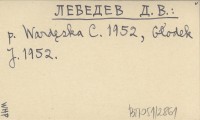 ЛЕБЕДЕВ Д. В.:
p. Wardęska C. 1952, Głodek
J. 1952.
WHP